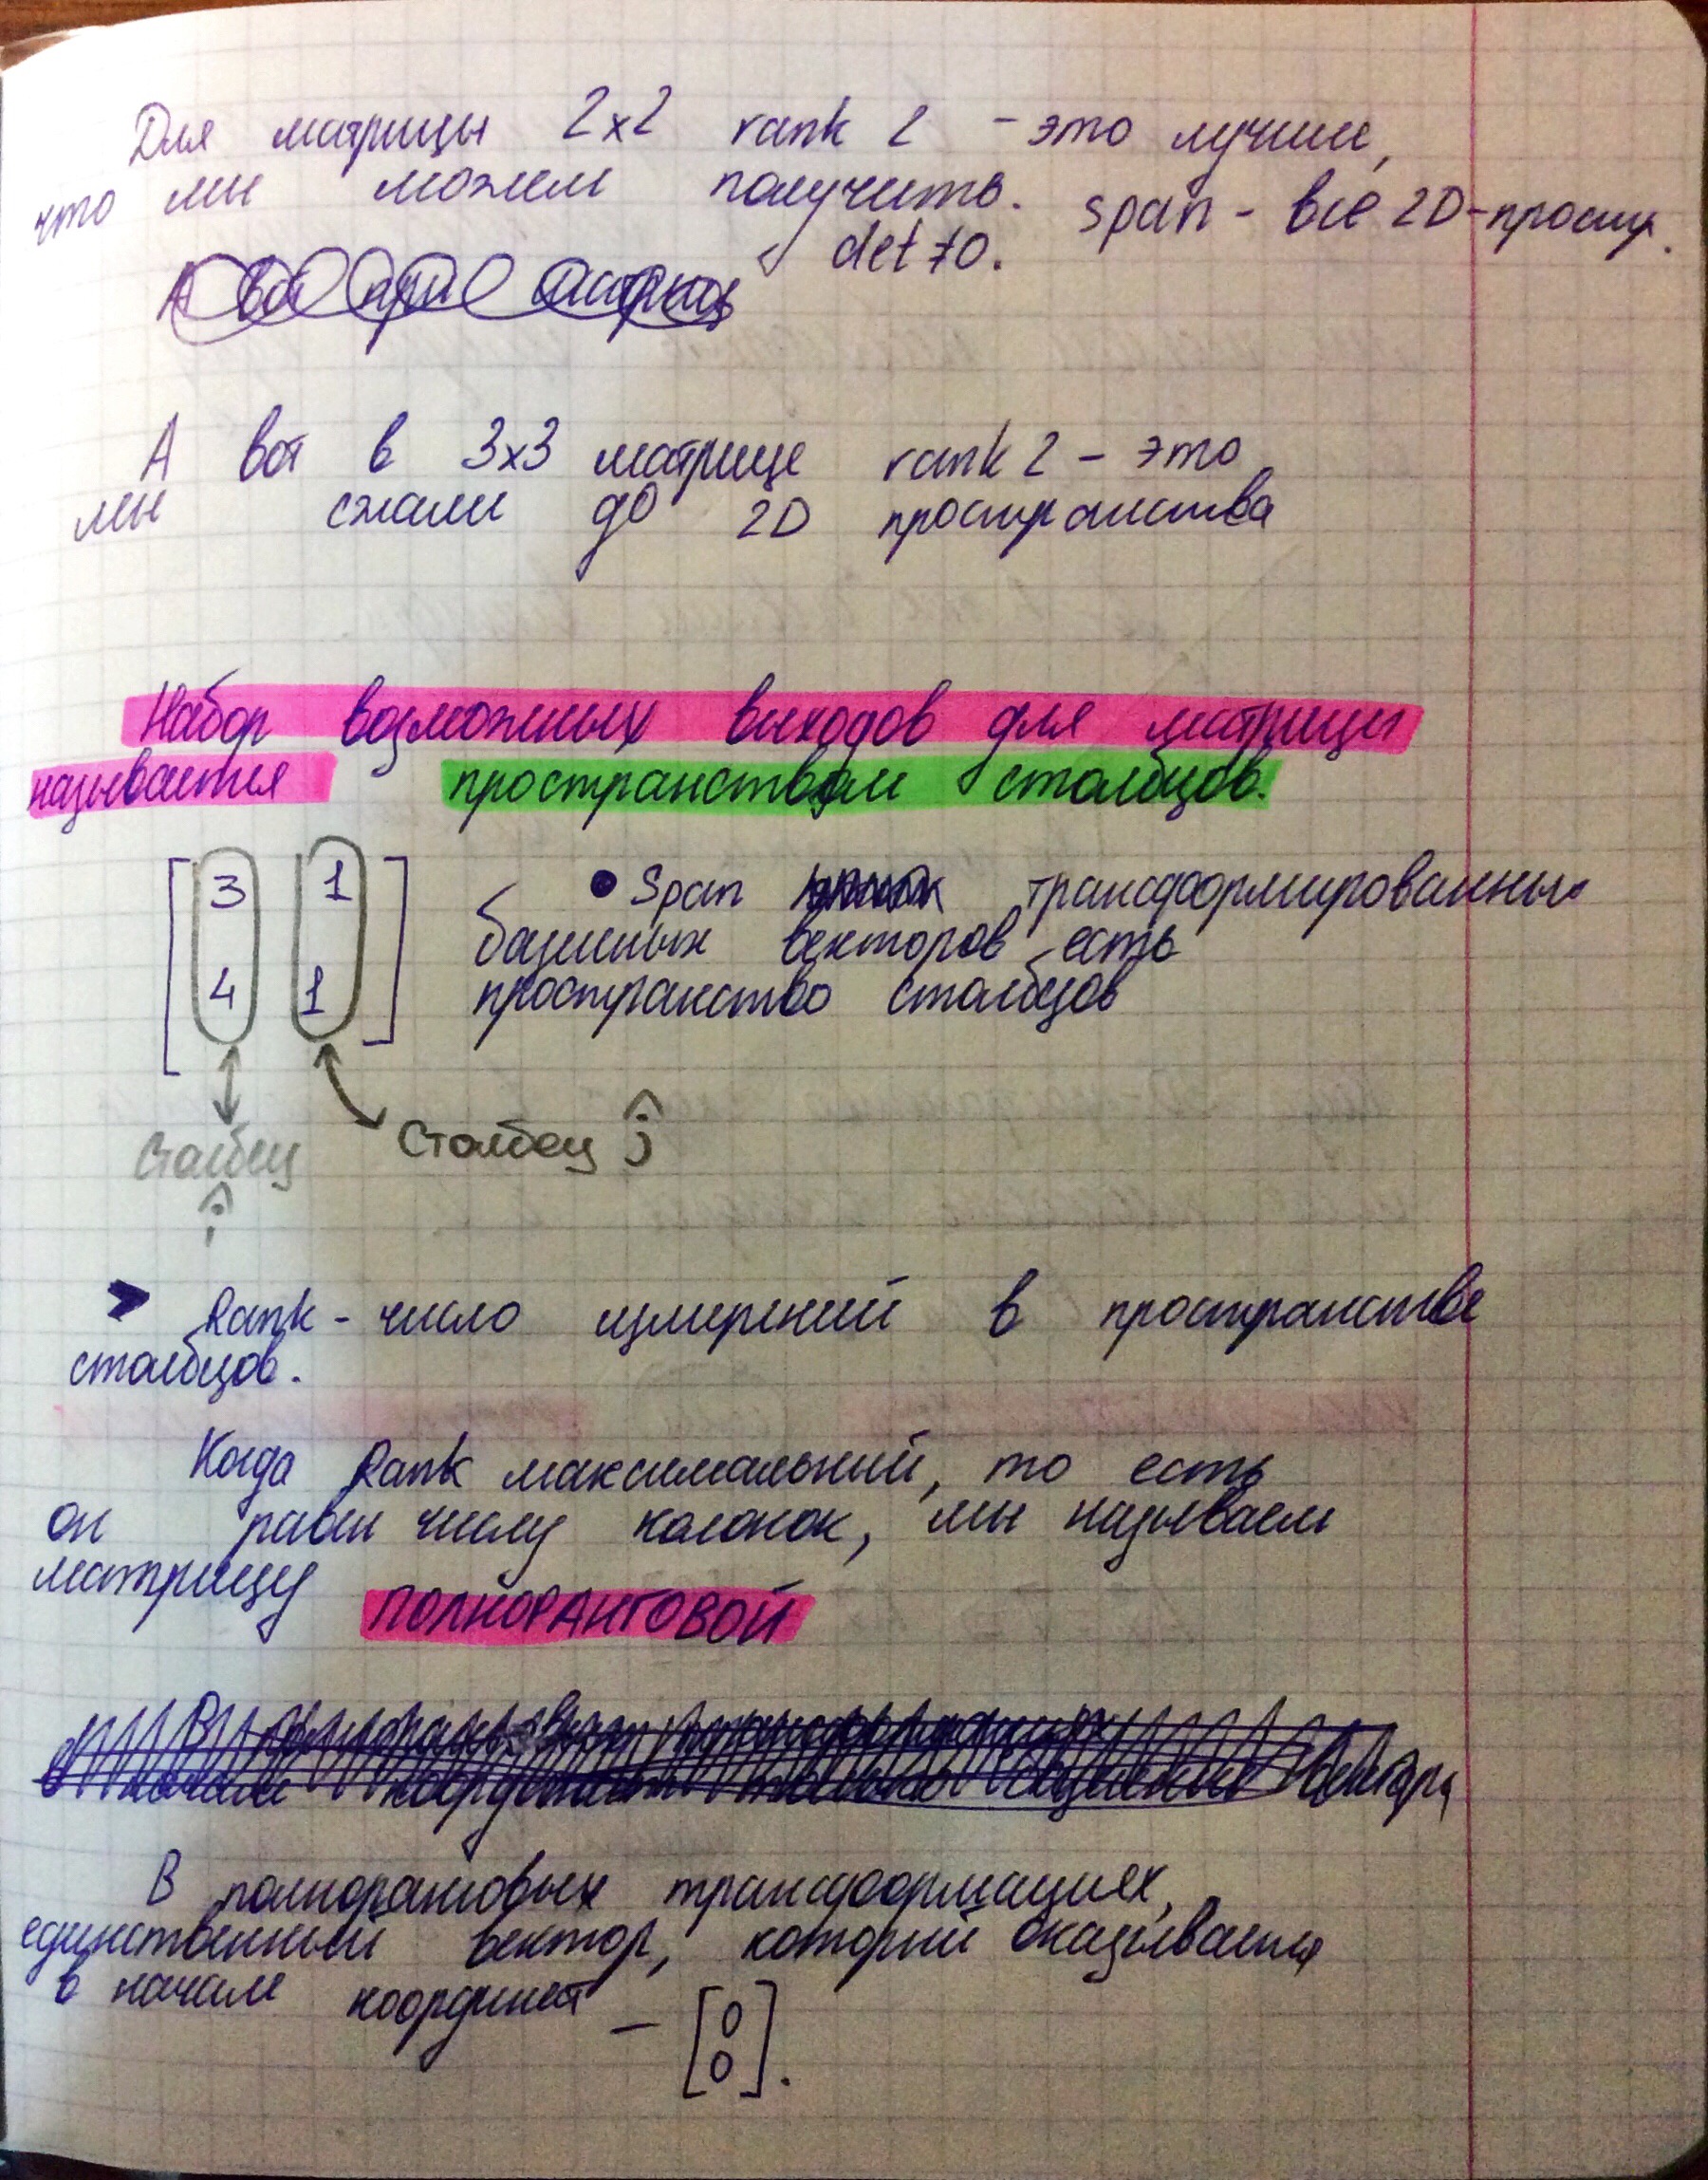 Для матрицы 2x2 rank 2 - это лучшее,
что мы можем получить. span - все 2D-простр.
det ≠0.
А вот при матриц
А вот в 3x3 матрице rank 2 - это
мы сжали до 2D пространства
Набор возможных выходов для матрицы
называется пространством столбцов.
[3 1
4 1]
• Span трансформированных
базисных векторов есть
пространство столбцов
Столбец ĵ
Столбец
î
> Rank - число измерений в пространстве
столбцов.
Когда Rank максимальный, то есть
он равен числу колонок, мы называем
матрицу ПОЛНОРАНГОВОЙ
В полноранговых трансформациях
начале координат базисные вектора
В полноранговых трансформациях,
единственный вектор, который оказывается
в начале координат - [0
0].